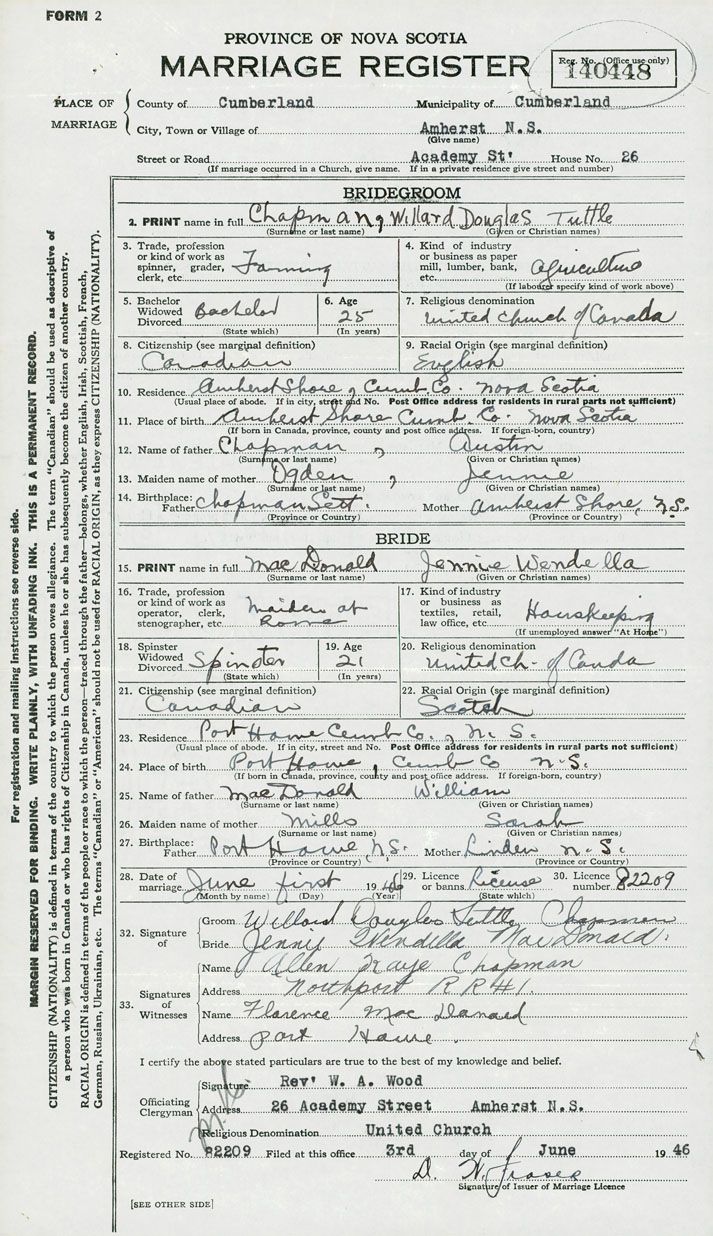 FORM 2
PROVINCE OF NOVA SCOTIA
MARRIAGE REGISTER
Reg. No. (Office use only)
140448
PLACE OF MARRIAGE
County of Cumberland Municipality of Cumberland
City, Town or Village of Amherst N.S.
(Give name)
Street or Road Academy St' House No. 26
(If marriage occurred in a Church, give name. If in a private residence give street and number)
BRIDEGROOM
2. PRINT name in full Chapman, Willard Douglas Tuttle
(Surname or last name) (Given or Christian names)
3. Trade, profession or kind of work as spinner, grader, clerk, etc. Farming
4. Kind of industry or business as paper mill, lumber, bank, etc. Agriculture
(If labourer specify kind of work above)
5. Bachelor Widowed Divorced Bachelor
(State which)
6. Age 25
(In years)
7. Religious denomination United Church of Canada
8. Citizenship (see marginal definition) Canadian
9. Racial Origin (see marginal definition) English
10. Residence Amherst Shore, Cumb. Co. Nova Scotia
(Usual place of abode. If in city, street and No. Post Office address for residents in rural parts not sufficient)
11. Place of birth Amherst Shore Cumb. Co. Nova Scotia
(If born in Canada, province, county and post office address. If foreign-born, country)
12. Name of father Chapman, Austin
(Surname or last name) (Given or Christian names)
13. Maiden name of mother Ogden, Jennie
(Surname or last name) (Given or Christian names)
14. Birthplace: Father Chapman Sett. Mother Amherst Shore, N.S.
(Province or Country) (Province or Country)
BRIDE
15. PRINT name in full MacDonald Jennie Wendella
(Surname or last name) (Given or Christian names)
16. Trade, profession or kind of work as operator, clerk, stenographer, etc. Maiden at Home
17. Kind of industry or business as textiles, retail, law office, etc. Houskeeping
(If unemployed answer "At Home")
18. Spinster Widowed Divorced Spinster
(State which)
19. Age 21
(In years)
20. Religious denomination United Ch. of Canda
21. Citizenship (see marginal definition) Canadian
22. Racial Origin (see marginal definition) Scotch
23. Residence Port Howe Cumb Co., N. S.
(Usual place of abode. If in city, street and No. Post Office address for residents in rural parts not sufficient)
24. Place of birth Port Howe, Cumb Co N.S.
(If born in Canada, province, county and post office address. If foreign-born, country)
25. Name of father MacDonald William
(Surname or last name) (Given or Christian names)
26. Maiden name of mother Mills Sarah
(Surname or last name) (Given or Christian names)
27. Birthplace: Father Port Howe, N.S. Mother Linden N.S.
(Province or Country) (Province or Country)
28. Date of marriage June first 1946
(Month by name) (Day) (Year)
29. Licence or banns License
(State which)
30. Licence number 82209
32. Signature of
Groom Willard Douglas Tuttle Chapman
Bride Jennie Wendella MacDonald.
33. Signatures of Witnesses
Name Allen Faye Chapman
Address Northport RR#1.
Name Florence MacDonald
Address Port Howe.
I certify the above stated particulars are true to the best of my knowledge and belief.
Officiating Clergyman
Signature Rev' W. A. Wood
Address 26 Academy Street Amherst N.S.
Religious Denomination United Church
Registered No. 82209 Filed at this office 3rd day of June 1946
D. W. Fraser
Signature of Issuer of Marriage Licence
[SEE OTHER SIDE]
For registration and mailing instructions see reverse side.
MARGIN RESERVED FOR BINDING. WRITE PLAINLY, WITH UNFADING INK. THIS IS A PERMANENT RECORD.
CITIZENSHIP (NATIONALITY) is defined in terms of the country to which the person owes allegiance. The term "Canadian" should be used as descriptive of
a person who was born in Canada or who has rights of Citizenship in Canada, unless he or she has subsequently become the citizen of another country.
RACIAL ORIGIN is defined in terms of the people or race to which the person—traced through the father—belongs, whether English, Irish, Scottish, French,
German, Russian, Ukrainian, etc. The terms "Canadian" or "American" should not be used for RACIAL ORIGIN, as they express CITIZENSHIP (NATIONALITY).